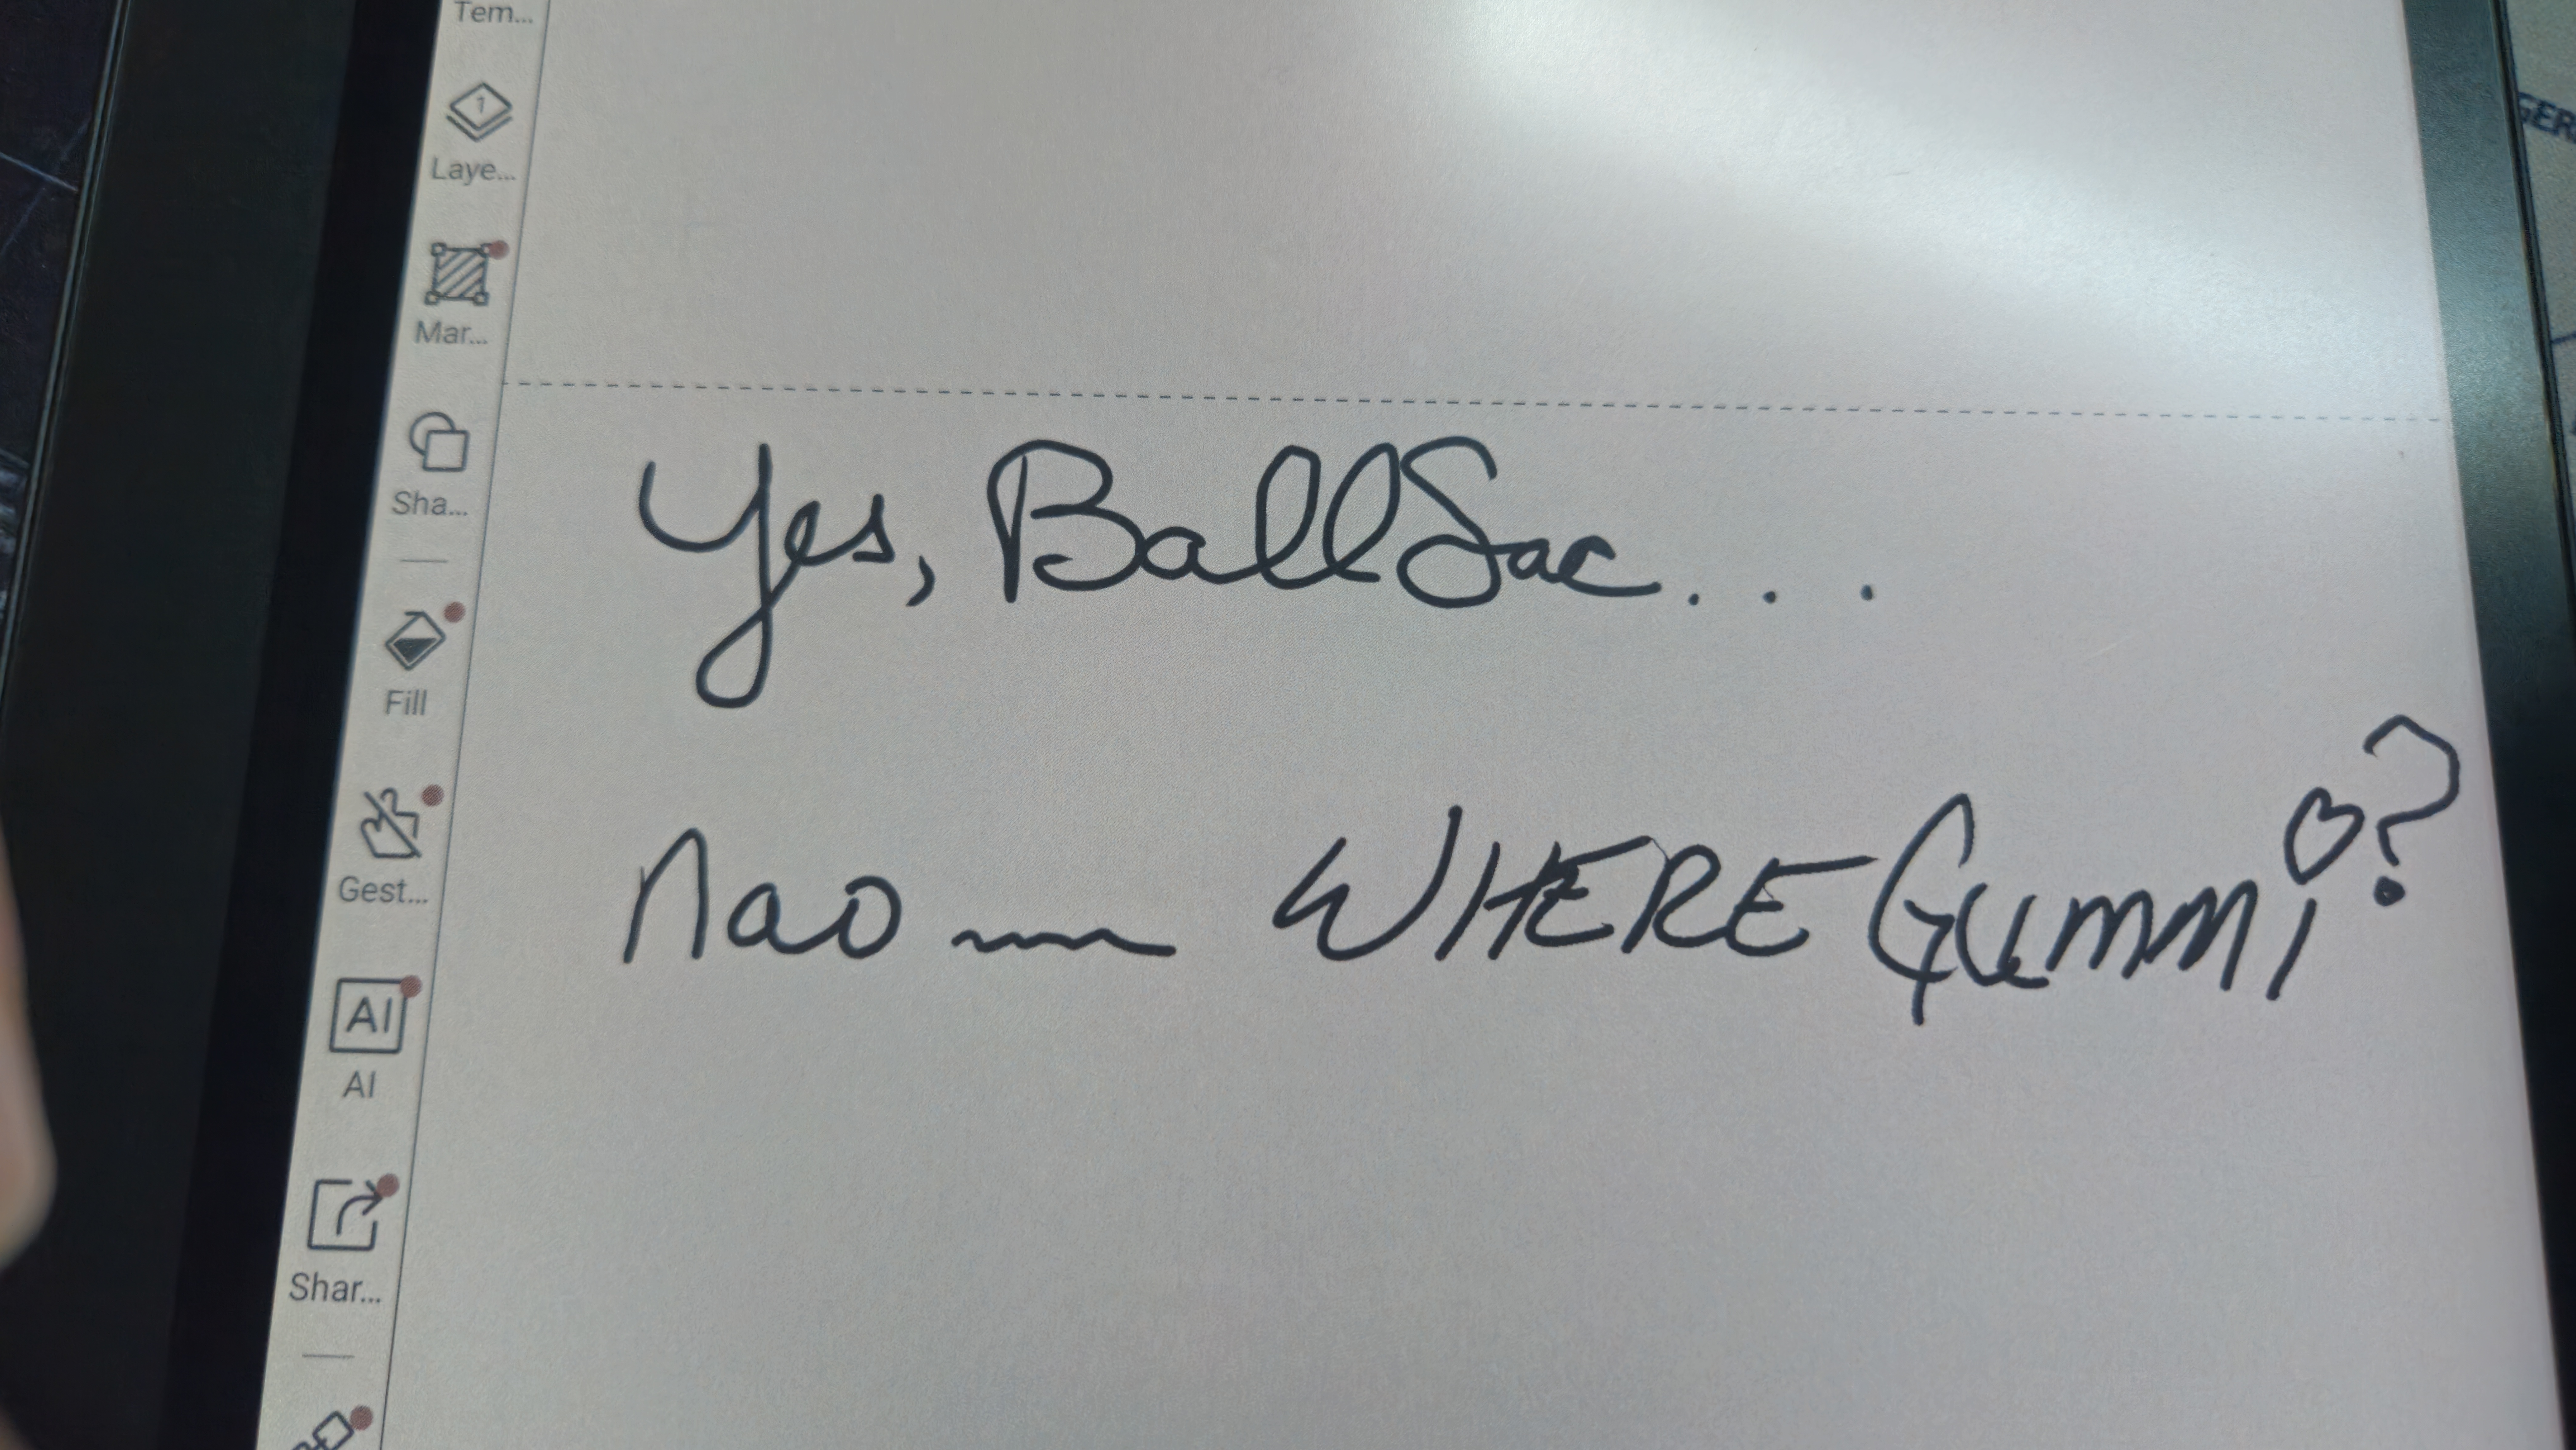 Tem...
Laye...
Mar...
Sha...
Fill
Gest...
AI
AI
Shar...
Yes, BallSac...
nao ~ WHERE Gummi?
GER